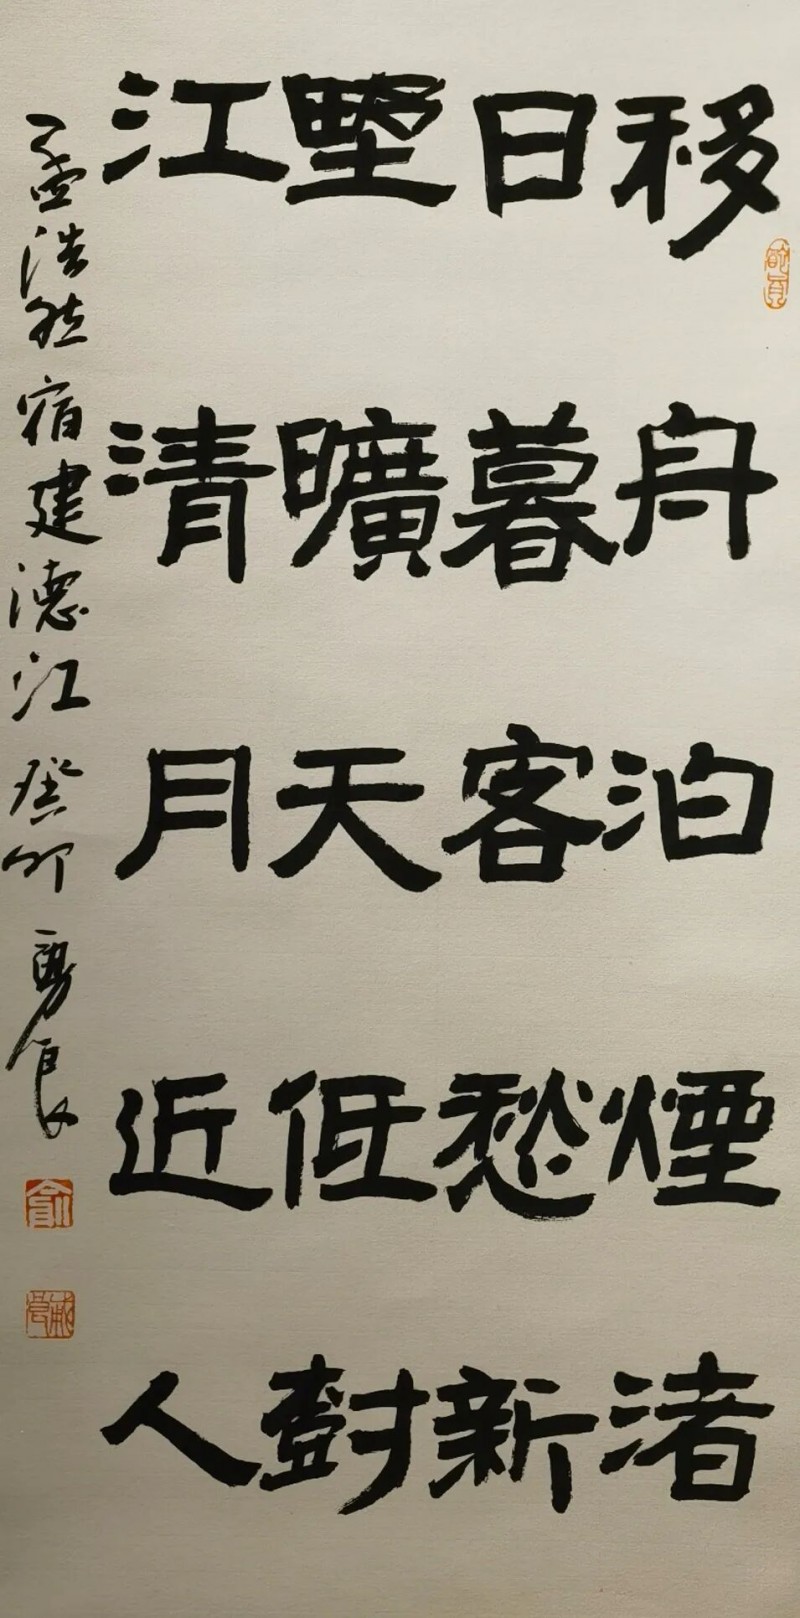 移舟泊煙渚
日暮客愁新
野曠天低樹
江清月近人
孟浩然宿建德江癸卯勇良
俞